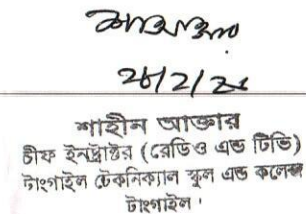 শাহীন আক্তার
চীফ ইনস্ট্রাক্টর (রেডিও এন্ড টিভি)
টাংগাইল টেকনিক্যাল স্কুল এন্ড কলেজ
টাংগাইল।